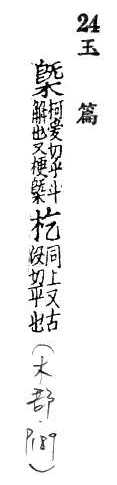 24 玉篇
槩 柯愛切平斗斛也又梗槩 杚 同上又古沒切平也 (木部. P189)